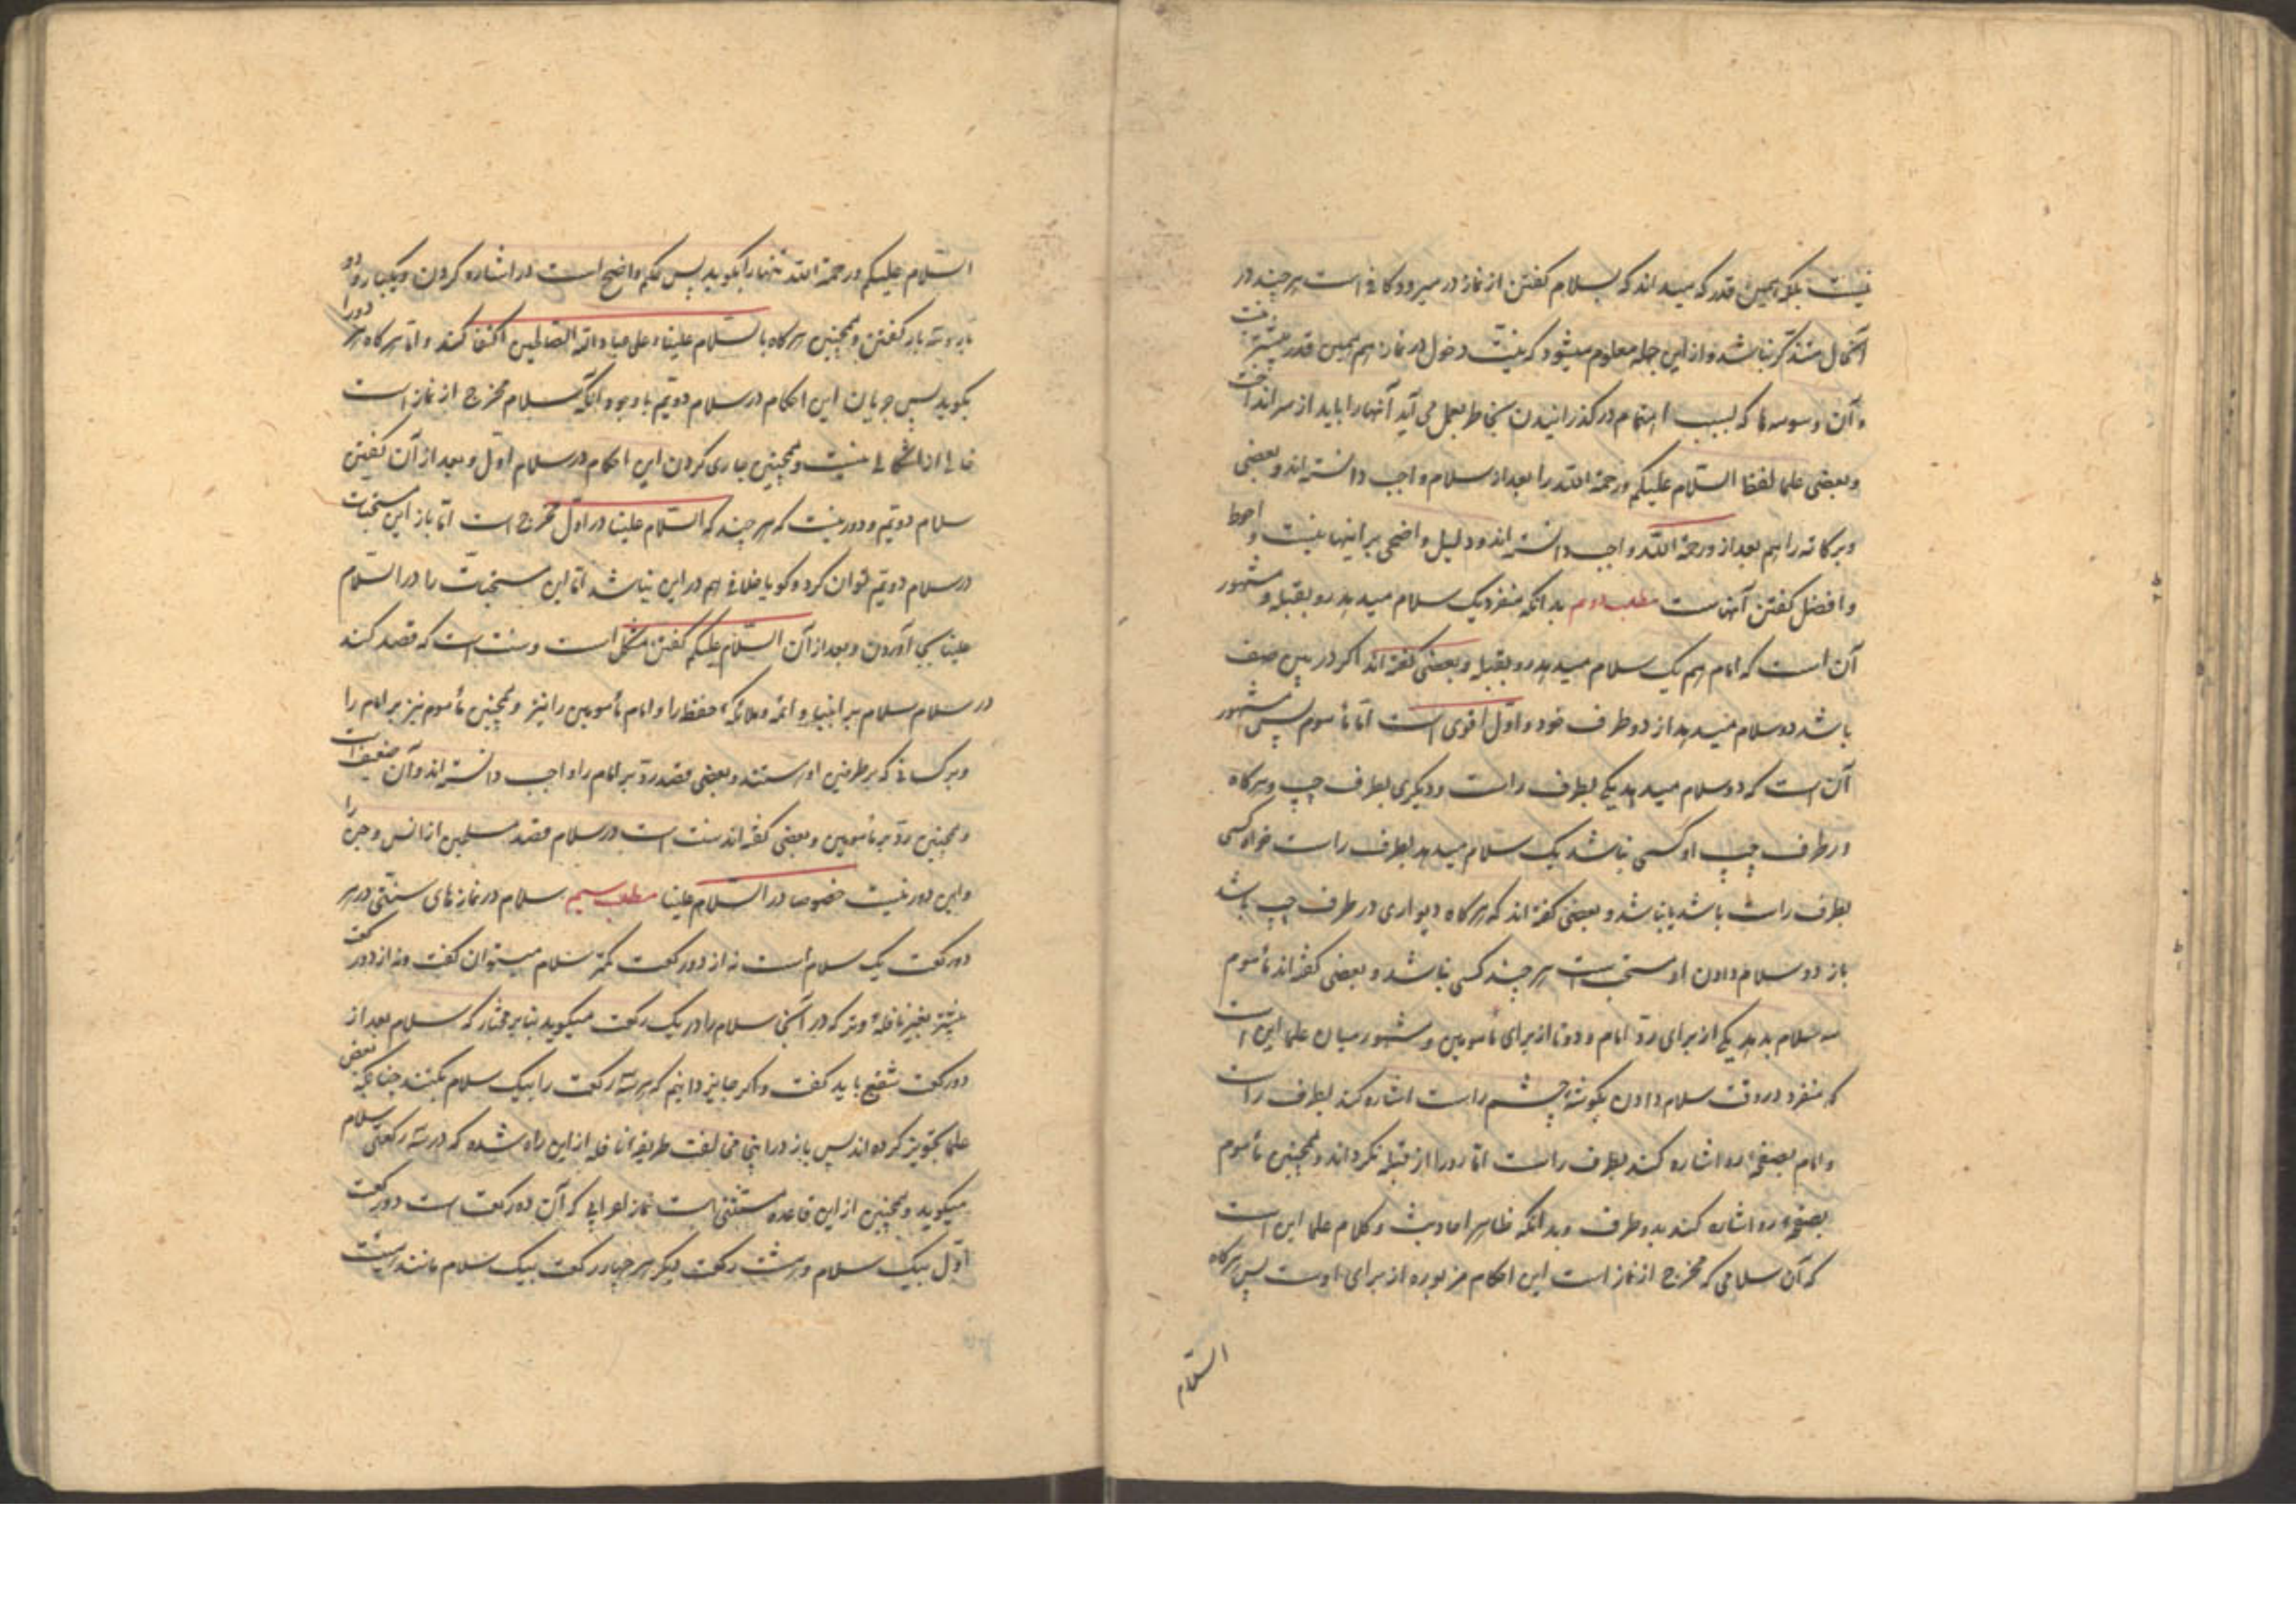 نیست بلکه همین قدر که میداند که بسلام کفتن از نماز در میرود کافی است هر چند در
آنحال متذکر نباشد و از این جمله معلوم میشود که نیت دخول در نماز هم همین قدر بیشتر نیست
و آن وسوسه ها که بسبب اهتمام در کذرانیدن بخاطر بعمل می آید آنها را باید از سر انداخت
و بعضی علما لفظ السلام علیکم و رحمة الله را بعد از سلام واجب دانسته اند و بعضی
و برکاته را هم بعد از و رحمة الله واجب دانسته اند و دلیل واضحی بر اینها نیست و احوط
و افضل کفتن آنهاست مطلب دوم بدانکه منفرد یک سلام میدهد رو بقبله و مشهور
آن است که امام هم یک سلام میدهد رو بقبله و بعضی کفته اند اکر در بین صف
باشد دو سلام میدهد از دو طرف خود و اول اقوی است اما مأموم پس مشهور
آن است که دو سلام میدهد یکی بطرف راست و دیکری بطرف چپ و هرکاه
در طرف چپ او کسی نباشد یک سلام میدهد بطرف راست خواه کسی
بطرف راست باشد یا نباشد و بعضی کفته اند که هرکاه دیواری در طرف چپ باشد
باز دو سلام دادن او مستحب است هر چند کسی نباشد و بعضی کفته اند مأموم
سه سلام بدهد یکی از برای رد امام و دو تا از برای مأمومین و مشهور میان علما این است
که منفرد در وقت سلام دادن بکوشهٔ چشم راست اشاره کند بطرف راست
و امام بصفحهٔ رو اشاره کند بطرف راست اما رو را از قبله نکرداند و همچنین مأموم
بصفحهٔ رو اشاره کند بدو طرف و بدانکه ظاهر احادیث و کلام علما این است
که آن سلامی که مخرج از نماز است این احکام مزبوره از برای اوست پس هرکاه
السلام
السلام علیکم و رحمة الله تنها را بکوید پس حکم واضح است در اشاره کردن و یکبار و دو
بار و سه بار کفتن و همچنین هرکاه با السلام علینا و علی عباد الله الصالحین اکتفا کند و اما هرکاه هر دو را
بکوید پس جریان این احکام در سلام دویم با وجود آنکه سلام مخرج از نماز است
خالی از اشکالی نیست و همچنین جاری کردن این احکام در سلام اول و بعد از آن کفتن
سلام دویم و دور نیست که هر چند که السلام علینا در اول مخرج است اما باز این مستحبات
در سلام دویم توان کرد و کویا خلافی هم در این نباشد اما این مستحبات را در السلام
علینا بجا آوردن و بعد از آن السلام علیکم کفتن مشکل است و سنت است که قصد کند
در سلام سلام بر انبیا و ائمه و ملائکه حفظه را و امام مأمومین را نیز و همچنین مأموم نیز بر امام را
و بر کسانی که بر طرفین او هستند و بعضی قصد رد بر امام را واجب دانسته اند و آن ضعیف است
و همچنین رد بر مأمومین و بعضی کفته اند سنت است در سلام قصد مسلمین از انس و جن را
و این دور نیست خصوصا در السلام علینا مطلب سیم سلام در نماز های سنتی در هر
دو رکعت یک سلام است نه از دو رکعت کمتر سلام میتوان کفت و نه از دو رکعت
بیشتر بغیر نافلهٔ وتر که در آنجا سلام را در یک رکعت میکوید بنا بر مختار که سلام بعد از
دو رکعت شفع باید کفت و اکر جایز دانیم که هر سه رکعت را بیک سلام بکنند چنانکه بعضی
علما تجویز کرده اند پس باز در اینجا مخالفت طریقه نافله از این راه شده که در سه رکعتی سلام
میکوید و همچنین از این قاعده مستثنی است نماز اعرابی که آن ده رکعت است دو رکعت
اول بیک سلام و هشت رکعت دیکر هر چهار رکعت بیک سلام مانند